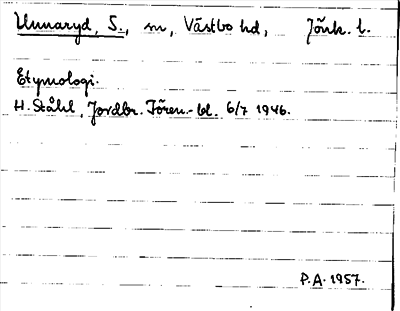 Unnaryd, S., sn, Västbo hd, Jönk. l.
Etymologi.
H. Ståhl, Jordbr. Fören.-bl. 6/7 1946.
P.A. 1957.